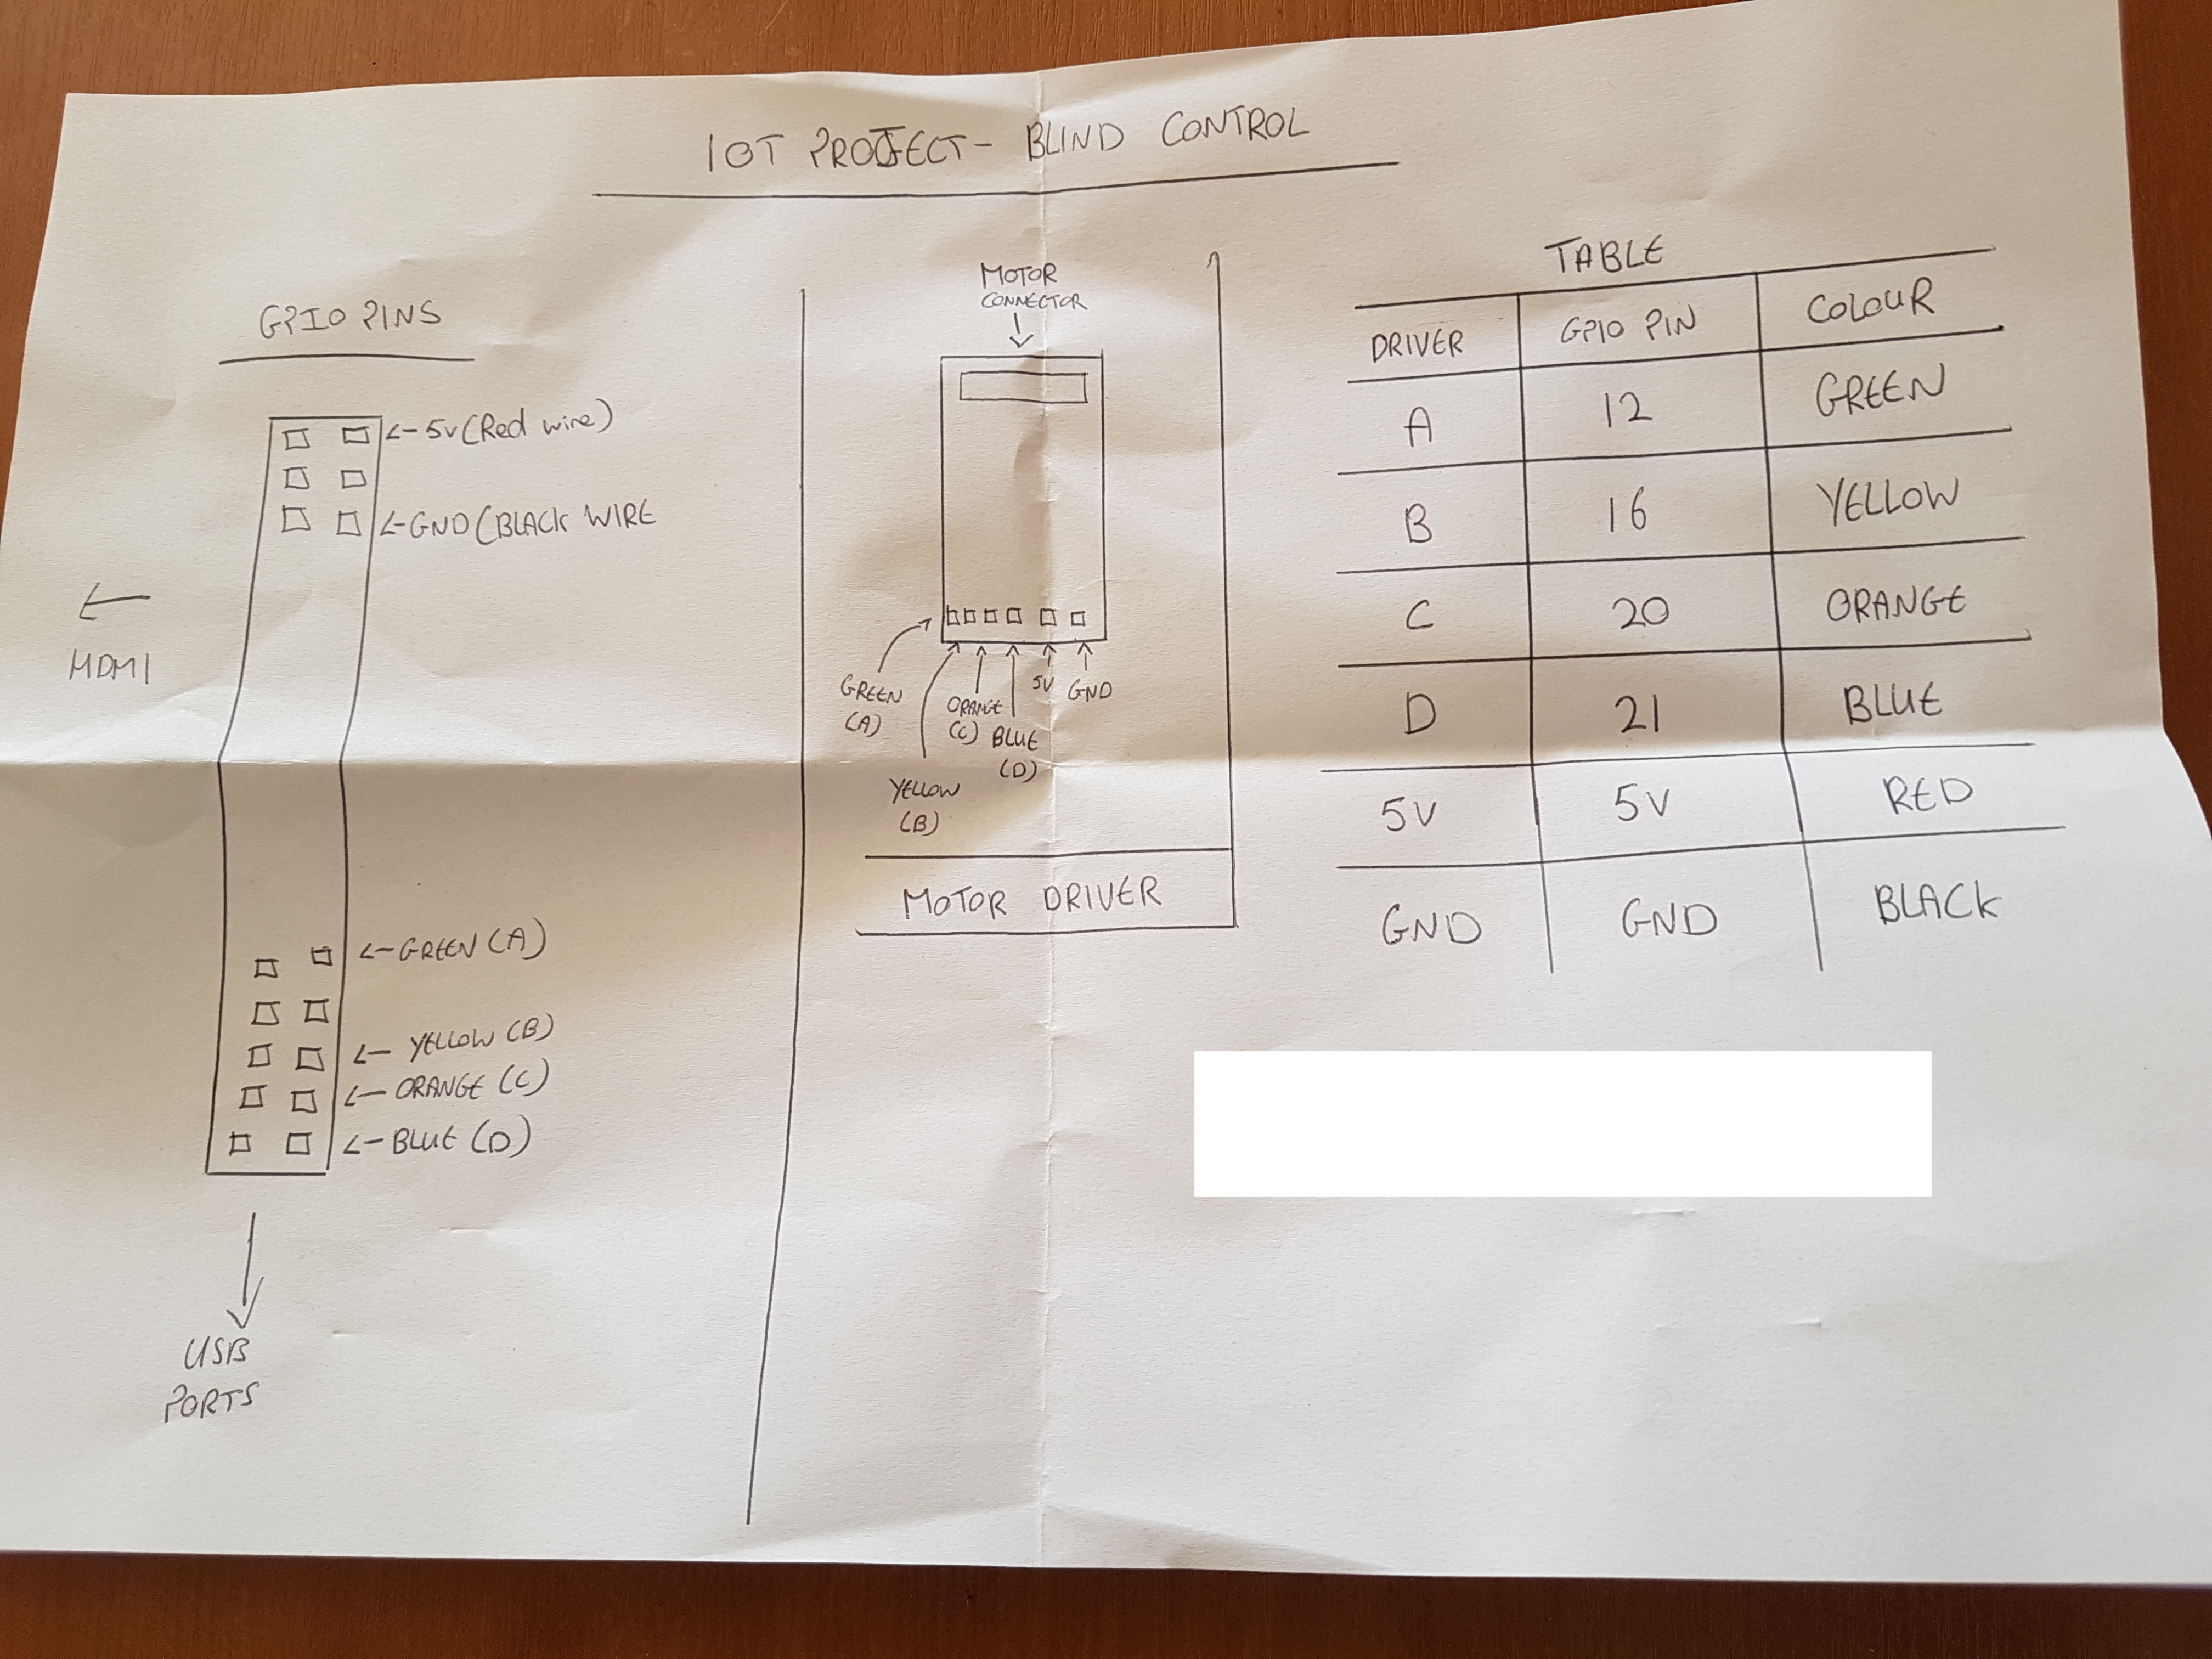 IOT PROJECT - BLIND CONTROL
GPIO PINS
<- 5v (Red wire)
<- GND (BLACK WIRE
<-
HDMI
<- GREEN (A)
<- YELLOW (B)
<- ORANGE (C)
<- BLUE (D)
USB
PORTS
MOTOR
CONNECTOR
GREEN
(A)
YELLOW
(B)
ORANGE
(C)
BLUE
(D)
5V
GND
MOTOR DRIVER
TABLE
DRIVER GPIO PIN COLOUR
A 12 GREEN
B 16 YELLOW
C 20 ORANGE
D 21 BLUE
5V 5V RED
GND GND BLACK